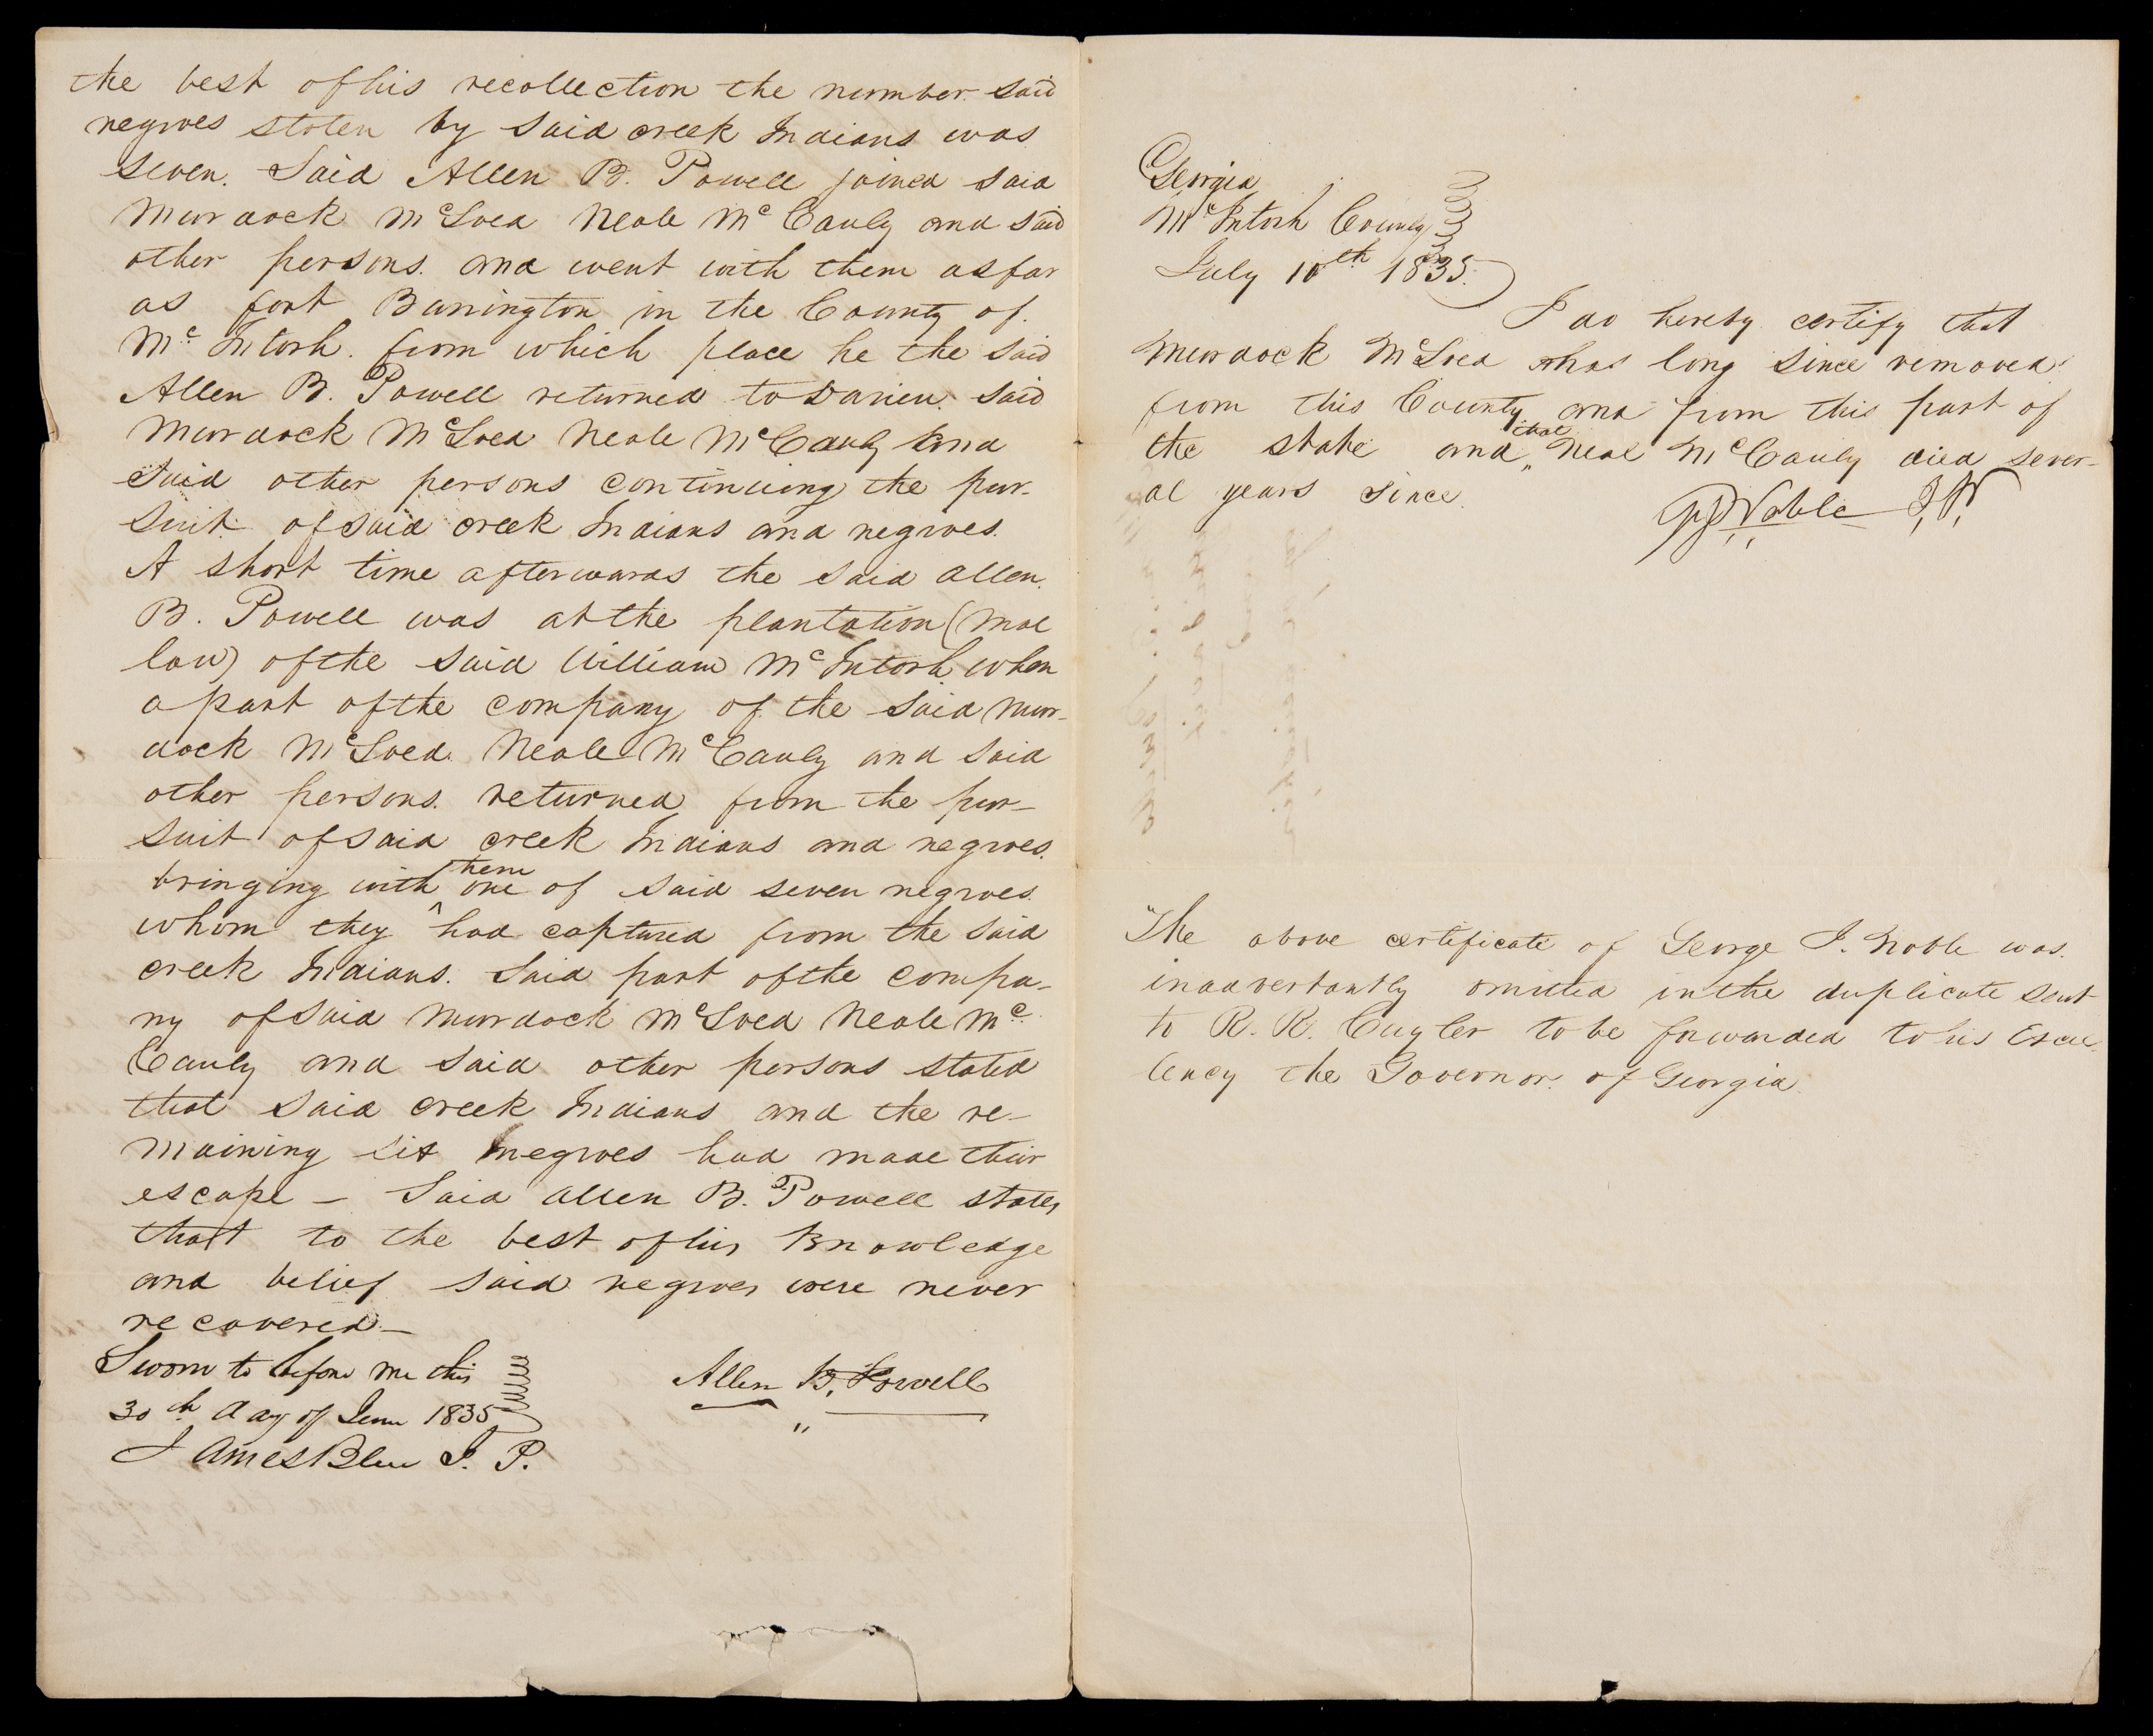 the best of his recollection the number said
negroes stolen by said creek Indians was
seven. Said Allen B. Powell joined said
Murdock McLoed Neale Mc Cauly and said
other persons. and went with them as far
as fort Barrington in the County of.
Mc Intosh. from which place he the said
Allen B. Powell returned to Darien. said
Murdock McLoed Neale McCauly and
said other persons continuing the pur-
suit of said creek Indians and negroes.
A short time afterwards the said Allen.
B. Powell was at the plantation (Mal
low) of the said William McIntosh when
a part of the company of the said Mur-
dock McLoed. Neale McCauly and said
other persons. returned from the pur-
suit of said creek Indians and negroes.
bringing with them one of said seven negroes.
whom they had captured from the said
creek Indians. Said part of the compa-
ny of said Murdock McLoed Neale Mc
Cauly and said other persons stated
that said creek Indians and the re-
maining six negroes had made their
escape - Said Allen B. Powell states
that to the best of his knowledge
and belief said negroes were never
recovered.-
Sworn to before me this
30th day of June 1835
James Blue J. P.
Allen B. Powell
Georgia
McIntosh County
July 10th 1835.
I do hereby certify that
Murdock McLoed has long since removed
from this County and from this part of
the state and that Neal McCauly died sever-
al years since.
G J Noble J, P,
The above certificate of George J. Noble was.
inadvertantly omitted in the duplicate sent
to R. R. Cuyler to be forwarded to his Excel-
lency the Governor. of Georgia.